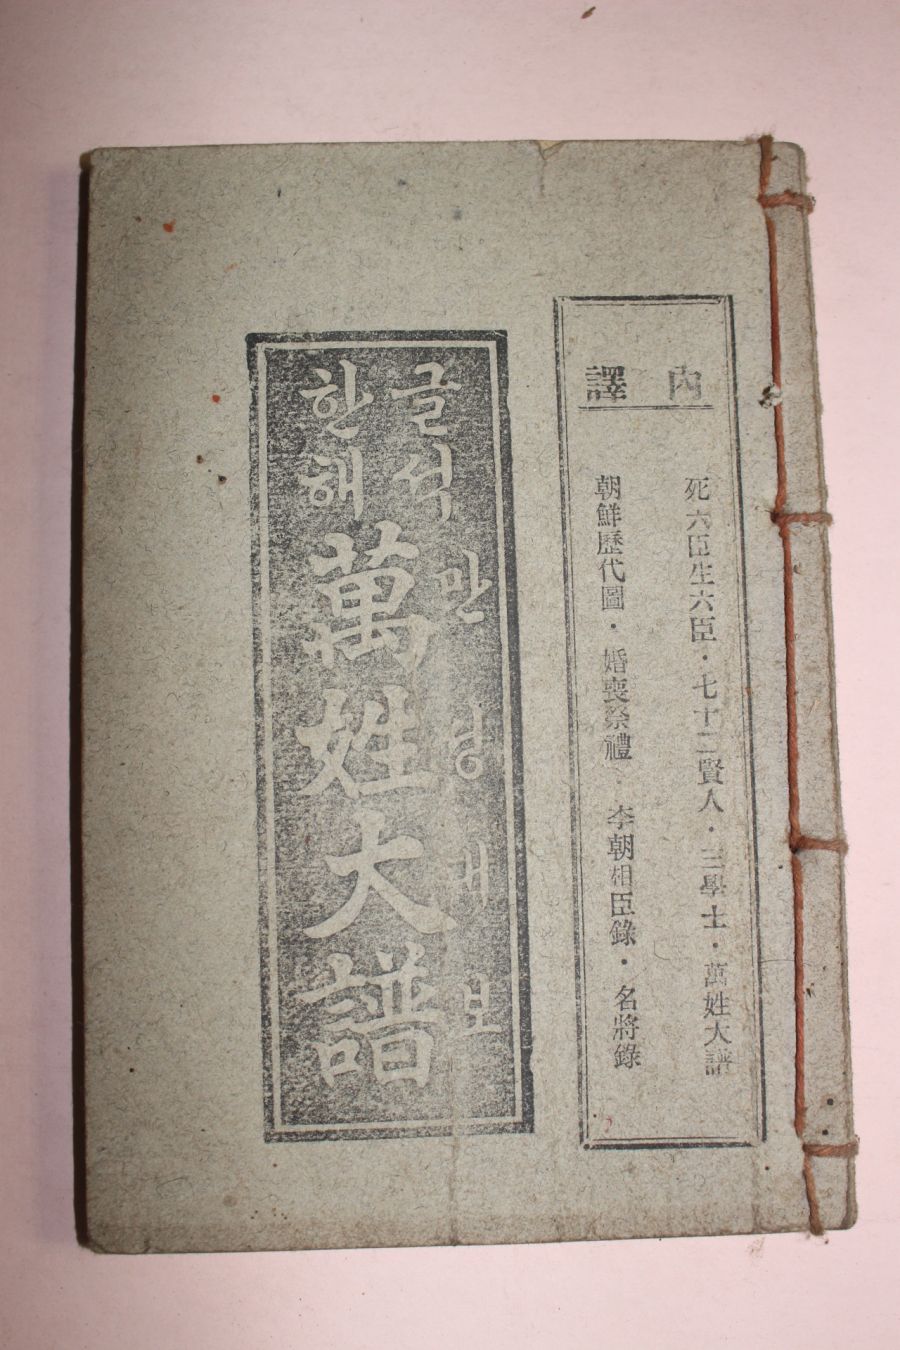 內譯
死六臣生六臣・七十二賢人・三學士・萬姓大譜
朝鮮歷代圖・婚喪祭禮・李朝相臣錄・名將錄
한글
해석
만성대보
萬姓大譜